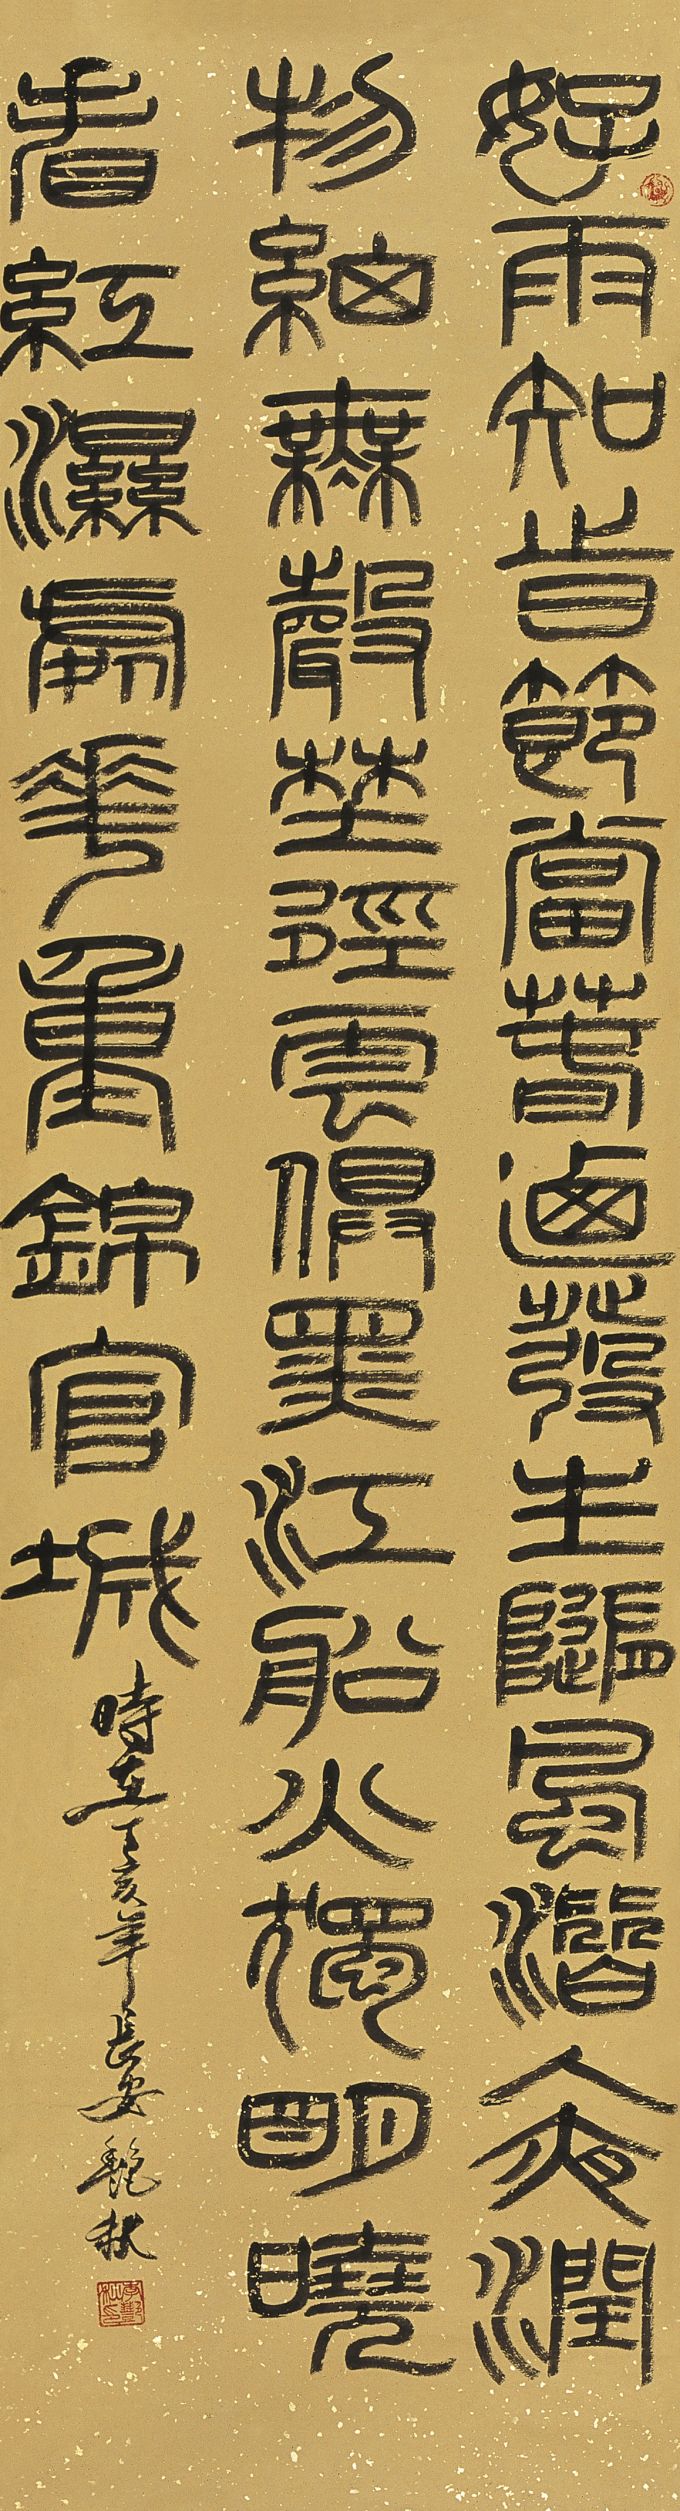 好雨知旹節當萅迺發生隨風潛入夜潤
物細無聲埜徑雲俱黑江船火獨明曉
看紅濕處華重錦官城
時在丁亥年長安艷秋